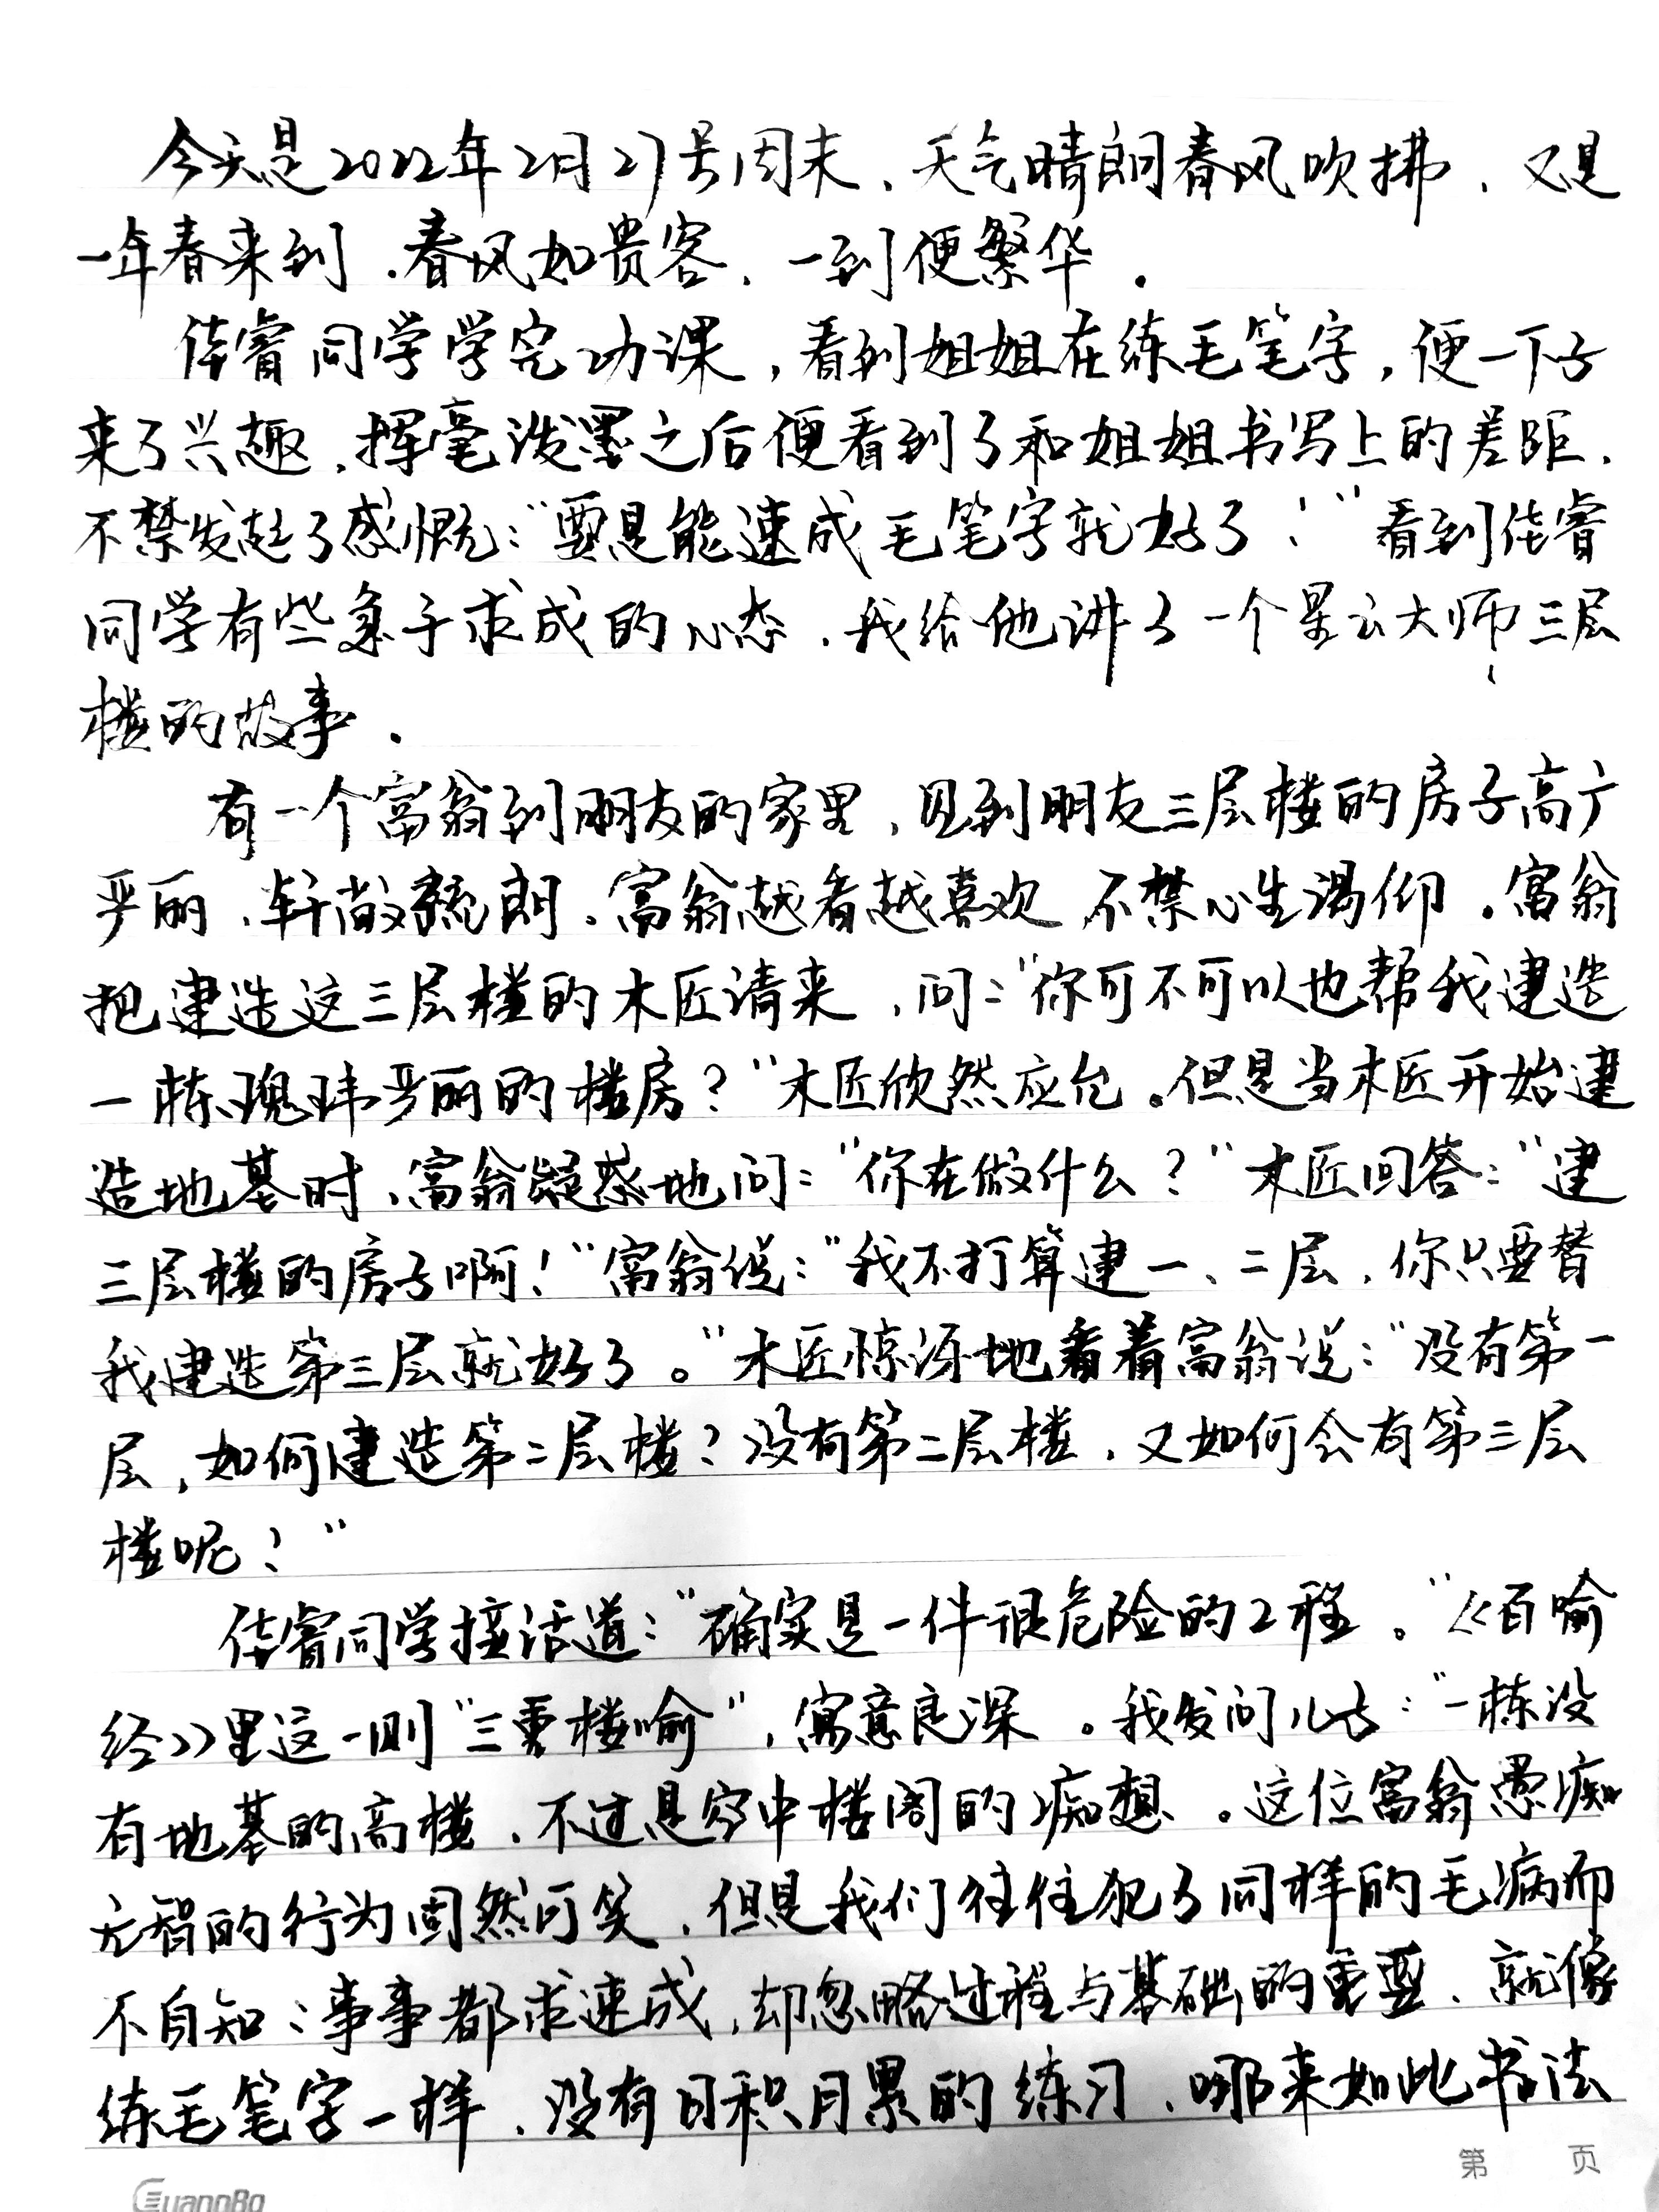 今天是2022年2月27号周末、天气晴朗春风吹拂、又是
一年春来到.春风如贵客、一到便繁华.
佳睿同学学完功课,看到姐姐在练毛笔字,便一下子
来了兴趣.挥毫泼墨之后便看到了和姐姐书写上的差距.
不禁发起了感慨:"要是能速成毛笔字就好了!"看到佳睿
同学有些急于求成的心态.我给他讲了一个星云大师三层
楼的故事.
有一个富翁到朋友的家里,见到朋友三层楼的房子高广
严丽、轩敞疏朗.富翁越看越喜欢 不禁心生渴仰.富翁
把建造这三层楼的木匠请来,问:"你可不可以也帮我建造
一栋瑰玮严丽的楼房?"木匠欣然应允.但是当木匠开始建
造地基时、富翁疑惑地问:"你在做什么?"木匠回答:"建
三层楼的房子啊!"富翁说:"我不打算建一、二层,你只要替
我建造第三层就好了。"木匠惊讶地看着富翁说:"没有第一
层,如何建造第二层楼?没有第二层楼,又如何会有第三层
楼呢?"
佳睿同学接话道:"确实是一件很危险的工程。"《百喻
经》里这一则"三重楼喻",寓意良深。我发问儿子:"一栋没
有地基的高楼、不过是空中楼阁的痴想。这位富翁愚痴
无智的行为固然可笑,但是我们往往犯了同样的毛病而
不自知:事事都求速成,却忽略过程与基础的重要、就像
练毛笔字一样、没有日积月累的练习、哪来如此书法
第 页
GuangBo